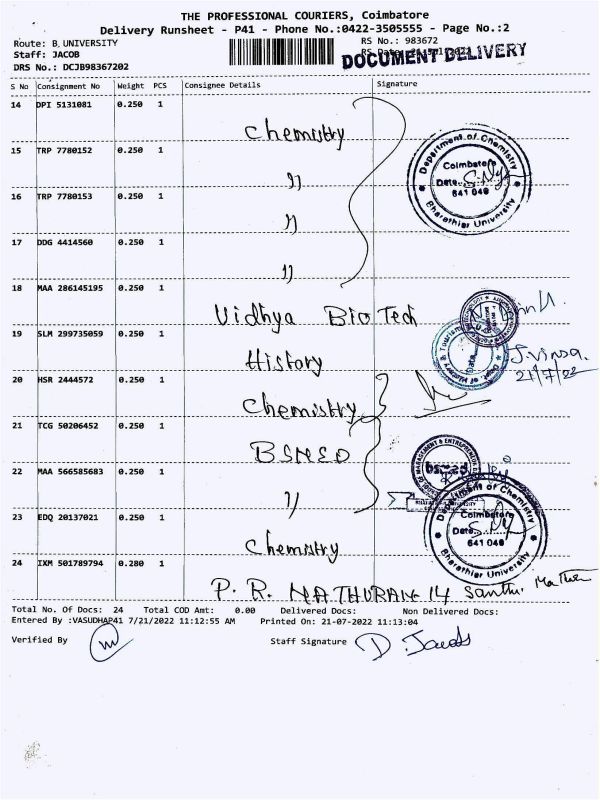 THE PROFESSIONAL COURIERS, Coimbatore
Delivery Runsheet - P41 - Phone No.:0422-3505555 - Page No.:2
Route: B.UNIVERSITY RS No.: 983672
Staff: JACOB
DOCUMENT DELIVERY
DRS No.: DCJB98367202
S No Consignment No Weight PCS Consignee Details Signature
14 DPI 5131081 0.250 1
Chemistry
15 TRP 7780152 0.250 1
"
16 TRP 7780153 0.250 1
"
17 DDG 4414560 0.250 1
"
18 MAA 286145195 0.250 1
Vidhya Bio Tech
19 SLM 299735059 0.250 1
History
20 HSR 2444572 0.250 1
Chemistry
21 TCG 50206452 0.250 1
BSMED
22 MAA 566585683 0.250 1
"
23 EDQ 20137021 0.250 1
Chemistry
24 IXM 501789794 0.280 1
P. R. MATHURAN 14
Department of Chemistry
Coimbatore
Date
641 046
Bharathiar University
21/7/22
bsmed
Department of Chemistry
Coimbatore
Date
641 046
Bharathiar University
Total No. Of Docs: 24 Total COD Amt: 0.00 Delivered Docs: Non Delivered Docs:
Entered By :VASUDHAP41 7/21/2022 11:12:55 AM Printed On: 21-07-2022 11:13:04
Verified By Staff Signature D. Jacob